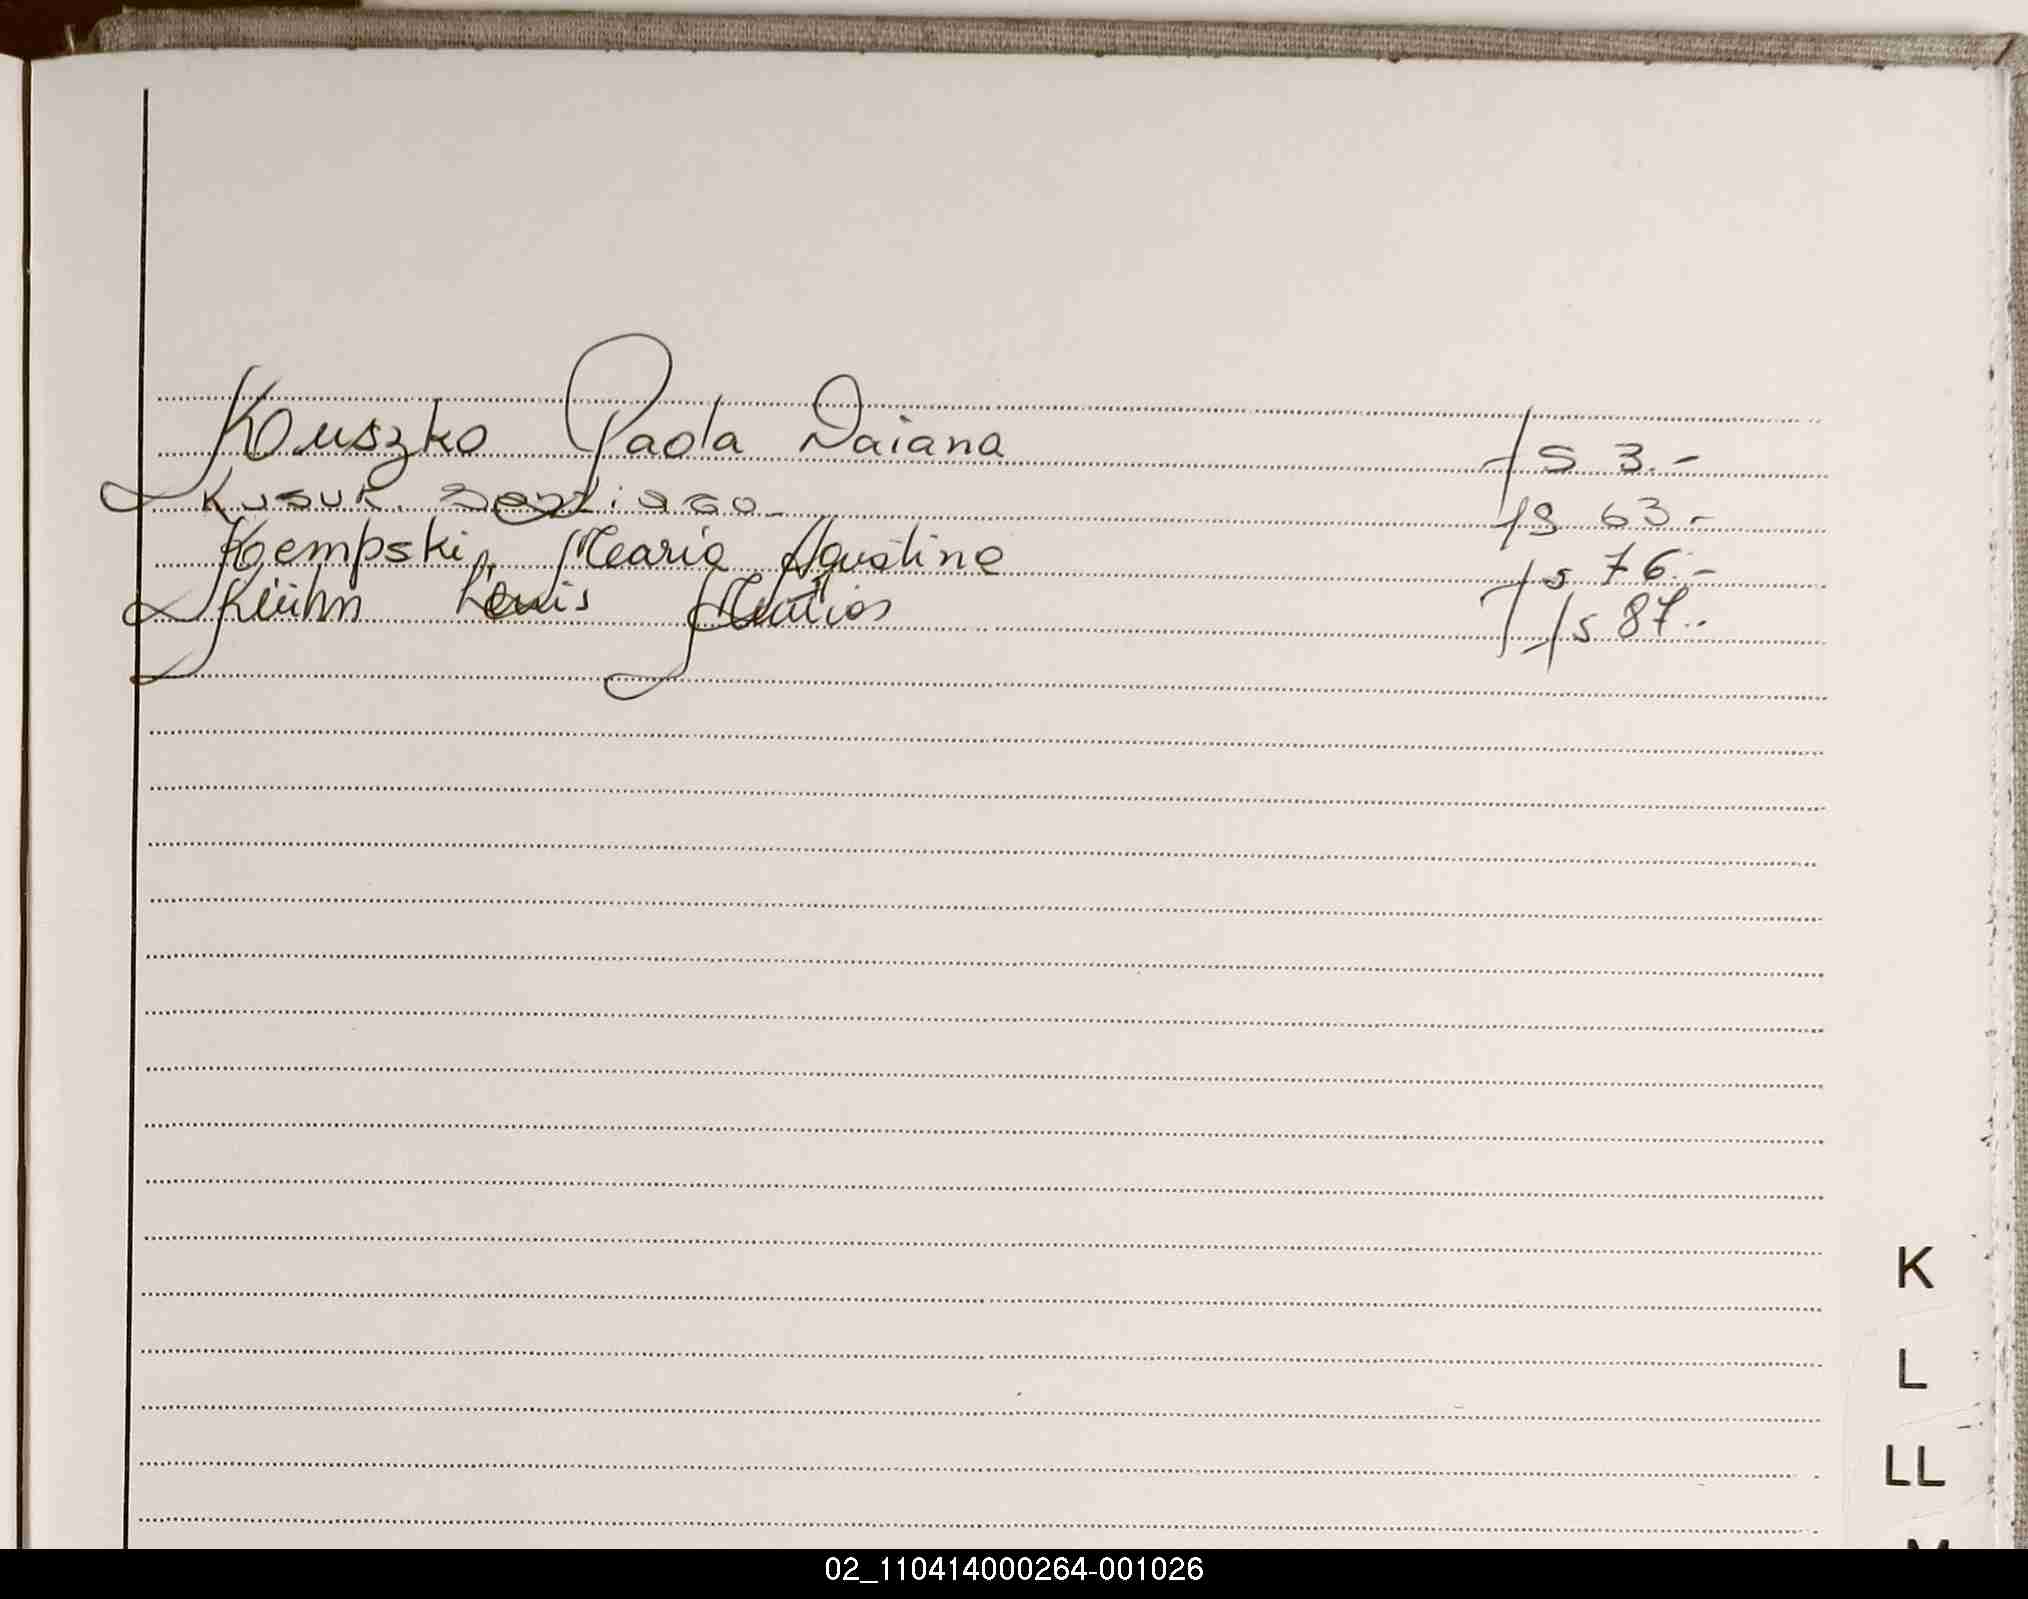 Kouszko Paola Daiana fs 3.-
Kusuk Santiago- fs 63.-
Koempski, Maria Agustina fs 76.-
Kuihn Louis Matias fs 87.-
K
L
LL
M
02_110414000264-001026